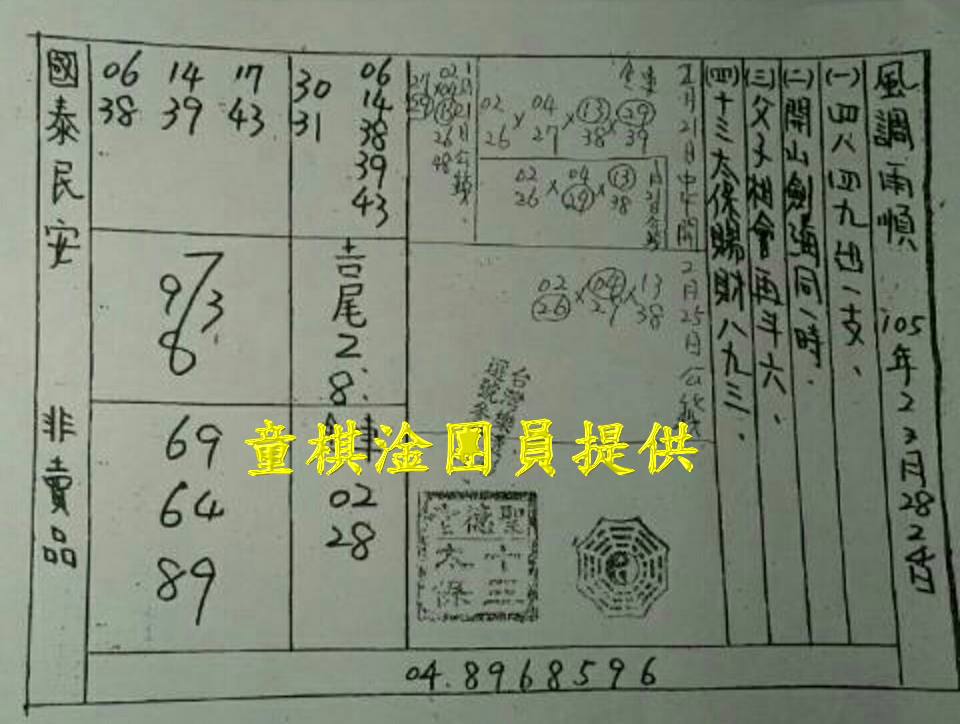 風調雨順 105年2月28日
2 3月24日
(一)四八四九出一支、
(二)開山劍海同一時.
(三)父子相會再斗六、
(四)十三太保賜財八九三.
正月21日中午開
2月25日公
02 × 04 × 13 × 29
26 27 38 39
02 × 04 × 13
26 29 38
02 × 04 × 13
26 29 38
聖德堂
十三太保
30 06
31 14
38
39
43
吉尾2.
8.
02
28
06 14 17
38 39 43
7
9/3
8
69
64
89
國泰民安 非賣品
04.8968596
童棋淦團員提供